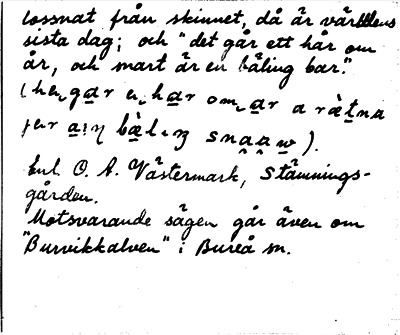 lossnat från skinnet, då är världens
sista dag; och "det går ett hår om
år, och snart är en bäling bar."
(he, gar e, har om, ar a
bäl snaaw).
Enl. O. A. Västermark, Stämnings-
gården.
Motsvarande sägen går även om
"Burvikkalven" i Bureå sn.